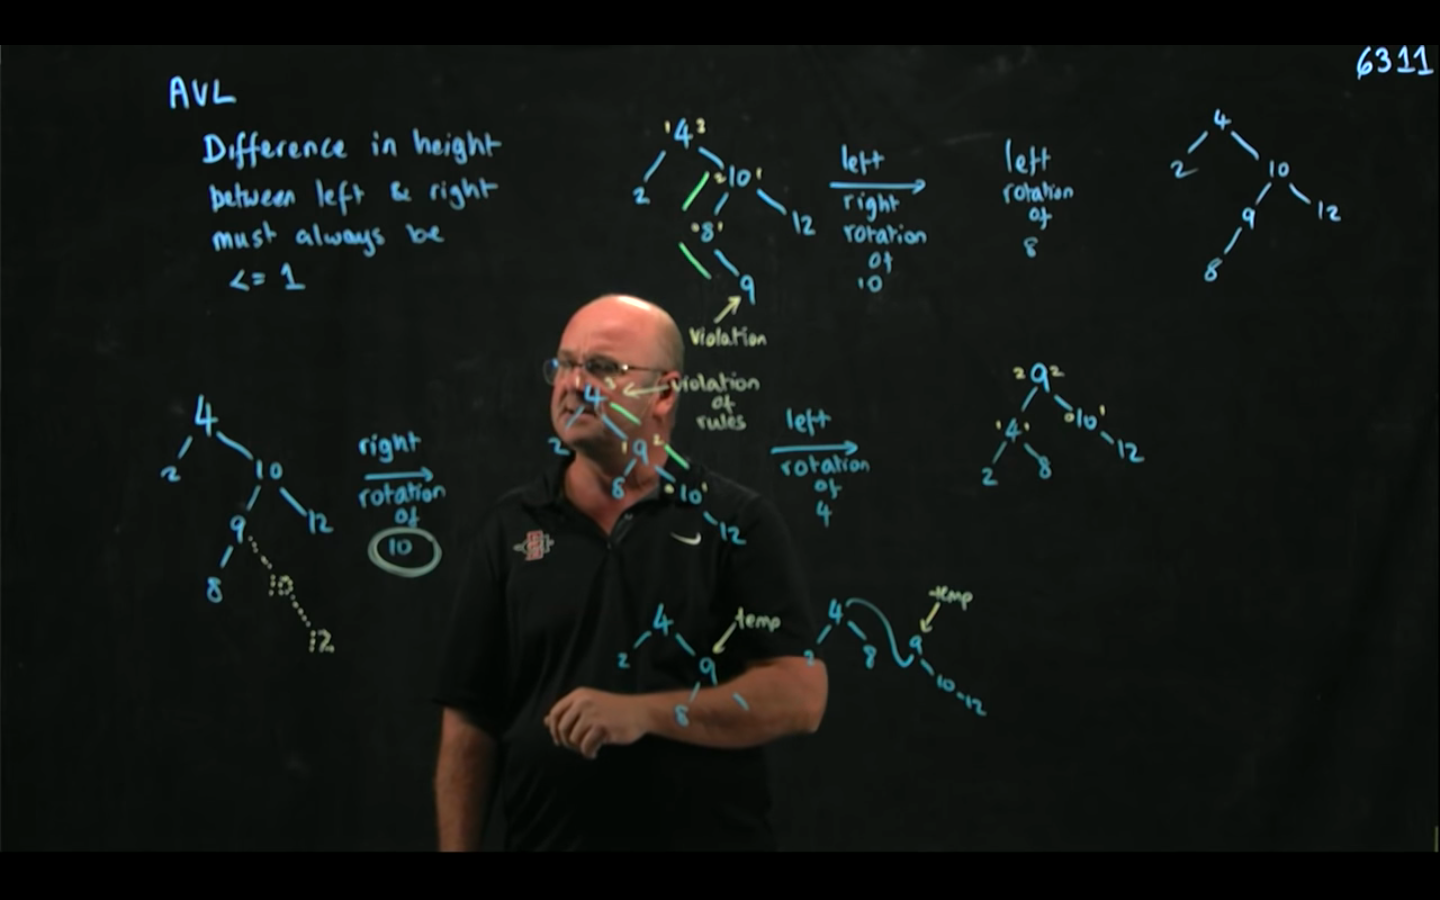 6311
AVL
Difference in height
between left & right
must always be
<= 1
1 4 3
2
2 10 1
0 8 1
12
9
violation
left
right
rotation
of
10
left
rotation
of
8
4
2
10
9
12
8
4
2
10
9
12
8
10
12
right
rotation
of
10
1 4 3
violation
of
rules
2
1 9 2
8
0 10 1
12
left
rotation
of
4
2 9 2
1 4 1
0 10 1
2
8
12
4
temp
2
9
8
4
temp
2
8
9
10
12